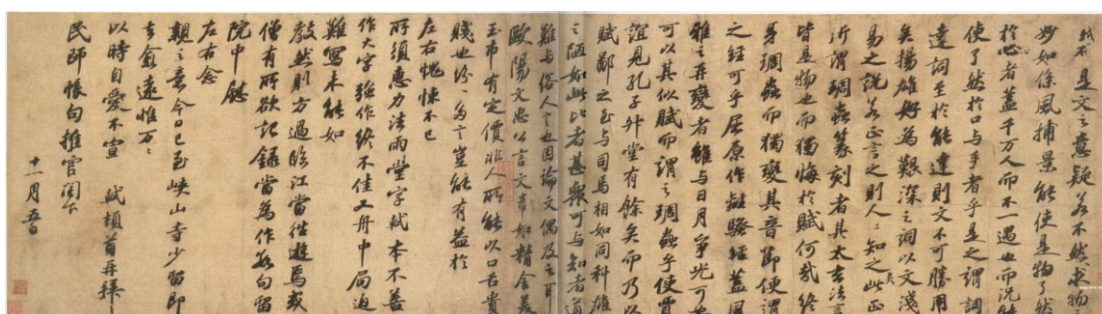 是文之意疑若不然求物
妙如係風捕景能使是物了然
於心者蓋千万人而不一遇也而況能
使了然於口与手者乎是之謂詞
達詞至於能達則文不可勝用
矣揚雄好為艱深之詞以文淺
易之說若正言之則人〻知之矣此正
所謂琱蟲篆刻者其太玄法言
皆是物也而獨悔於賦何哉終
身琱蟲而獨變其音節便謂
之經可乎屈原作離騷經蓋風
雅之再變者雖与日月爭光可也
可以其似賦而謂之琱蟲乎使賈
誼見孔子升堂有餘矣而乃以
賦鄙之至与司馬相如同科雄
之陋如此比者甚衆可与知者道
難与俗人言也因論文偶及之耳
歐陽文忠公言文章如精金美
玉市有定價非人所能以口舌貴
賤也紛〻多言豈能有益於
左右愧悚不已
所須惠力法雨堂字軾本不善
作大字強作終不佳又舟中局迫
難寫未能如
教然則方過臨江當往遊焉或
僧有所欲記錄當為作數句留
院中慰
左右念
親之意今日已至峽山寺少留即
去愈遠惟万〻
以時自愛不宣 軾頓首再拜
民師帳句推官閣下
十一月五日